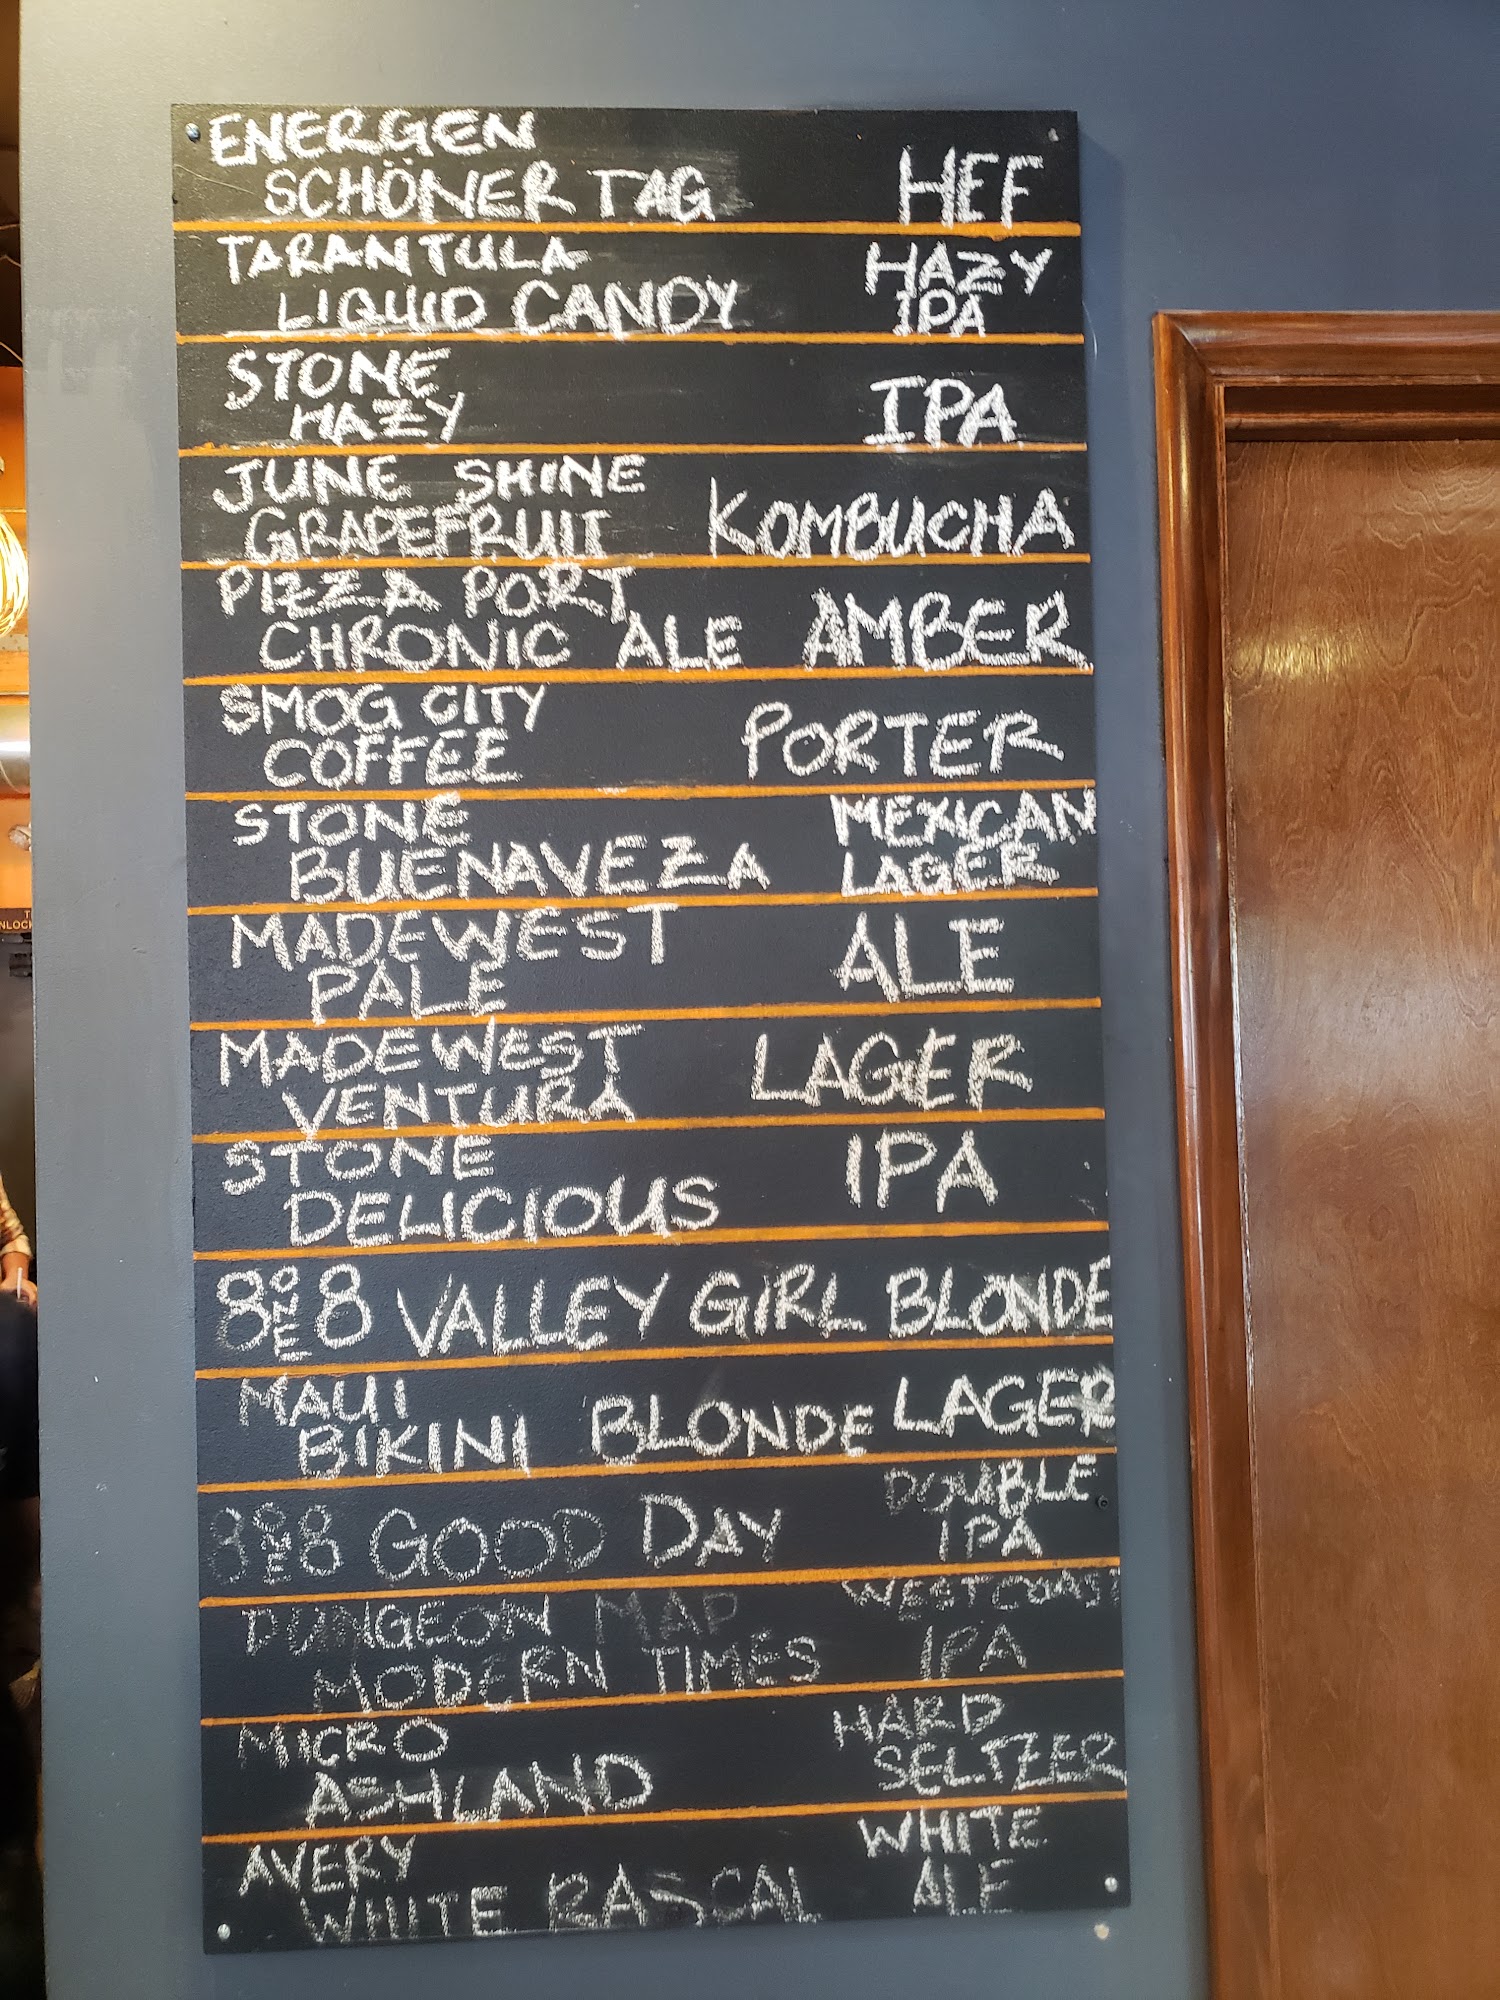 ENERGEN
SCHÖNER TAG HEF
TARANTULA HAZY
LIQUID CANDY IPA
STONE
HAZY IPA
JUNE SHINE
GRAPEFRUIT KOMBUCHA
PIZZA PORT
CHRONIC ALE AMBER
SMOG CITY
COFFEE PORTER
STONE MEXICAN
BUENAVEZA LAGER
MADEWEST
PALE ALE
MADEWEST
VENTURA LAGER
STONE IPA
DELICIOUS
8ONE8 VALLEY GIRL BLONDE
MAUI
BIKINI BLONDE LAGER
8ONE8 GOOD DAY DOUBLE
IPA
DUNGEON MAP WESTCOAST
MODERN TIMES IPA
MICRO HARD
ASHLAND SELTZER
AVERY WHITE
WHITE RASCAL ALE